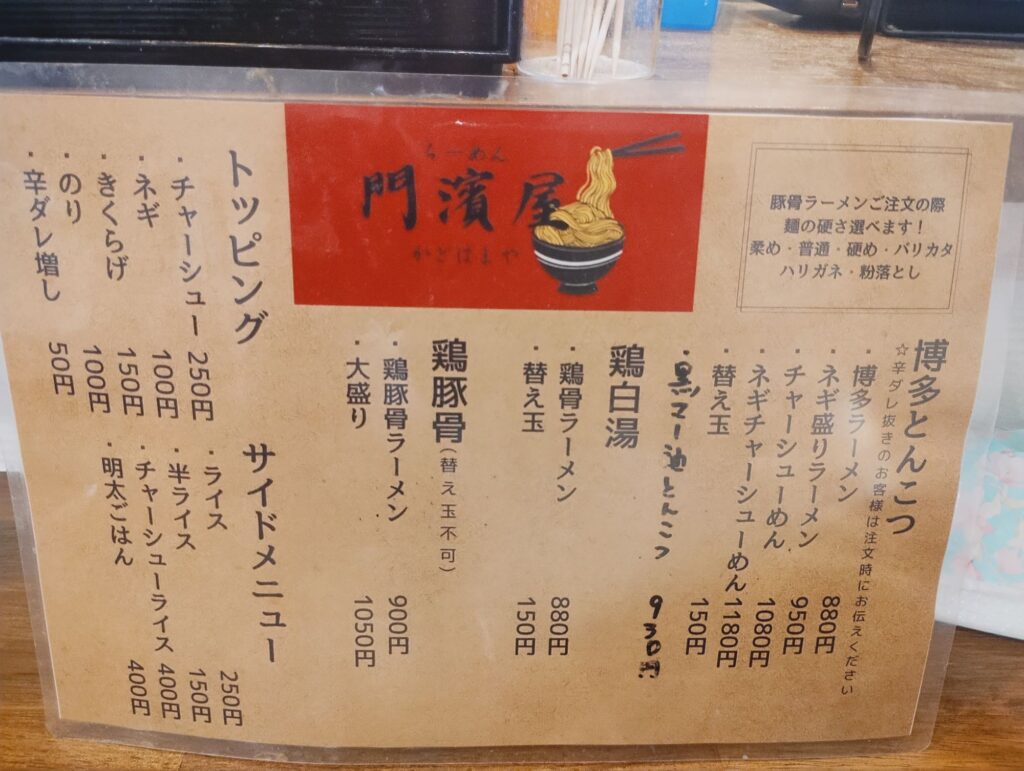 らーめん
門濱屋
かどはまや
豚骨ラーメンご注文の際
麺の硬さ選べます！
柔め・普通・硬め・バリカタ
ハリガネ・粉落とし
博多とんこつ
☆辛ダレ抜きのお客様は注文時にお伝えください
・博多ラーメン 880円
・ネギ盛りラーメン 950円
・チャーシューめん 1080円
・ネギチャーシューめん 1180円
・替え玉 150円
・黒マー油とんこつ 930円
鶏白湯
・鶏骨ラーメン 880円
・替え玉 150円
鶏豚骨(替え玉不可)
・鶏豚骨ラーメン 900円
・大盛り 1050円
トッピング
・チャーシュー 250円
・ネギ 100円
・きくらげ 150円
・のり 100円
・辛ダレ増し 50円
サイドメニュー
・ライス 250円
・半ライス 150円
・チャーシューライス 400円
・明太ごはん 400円